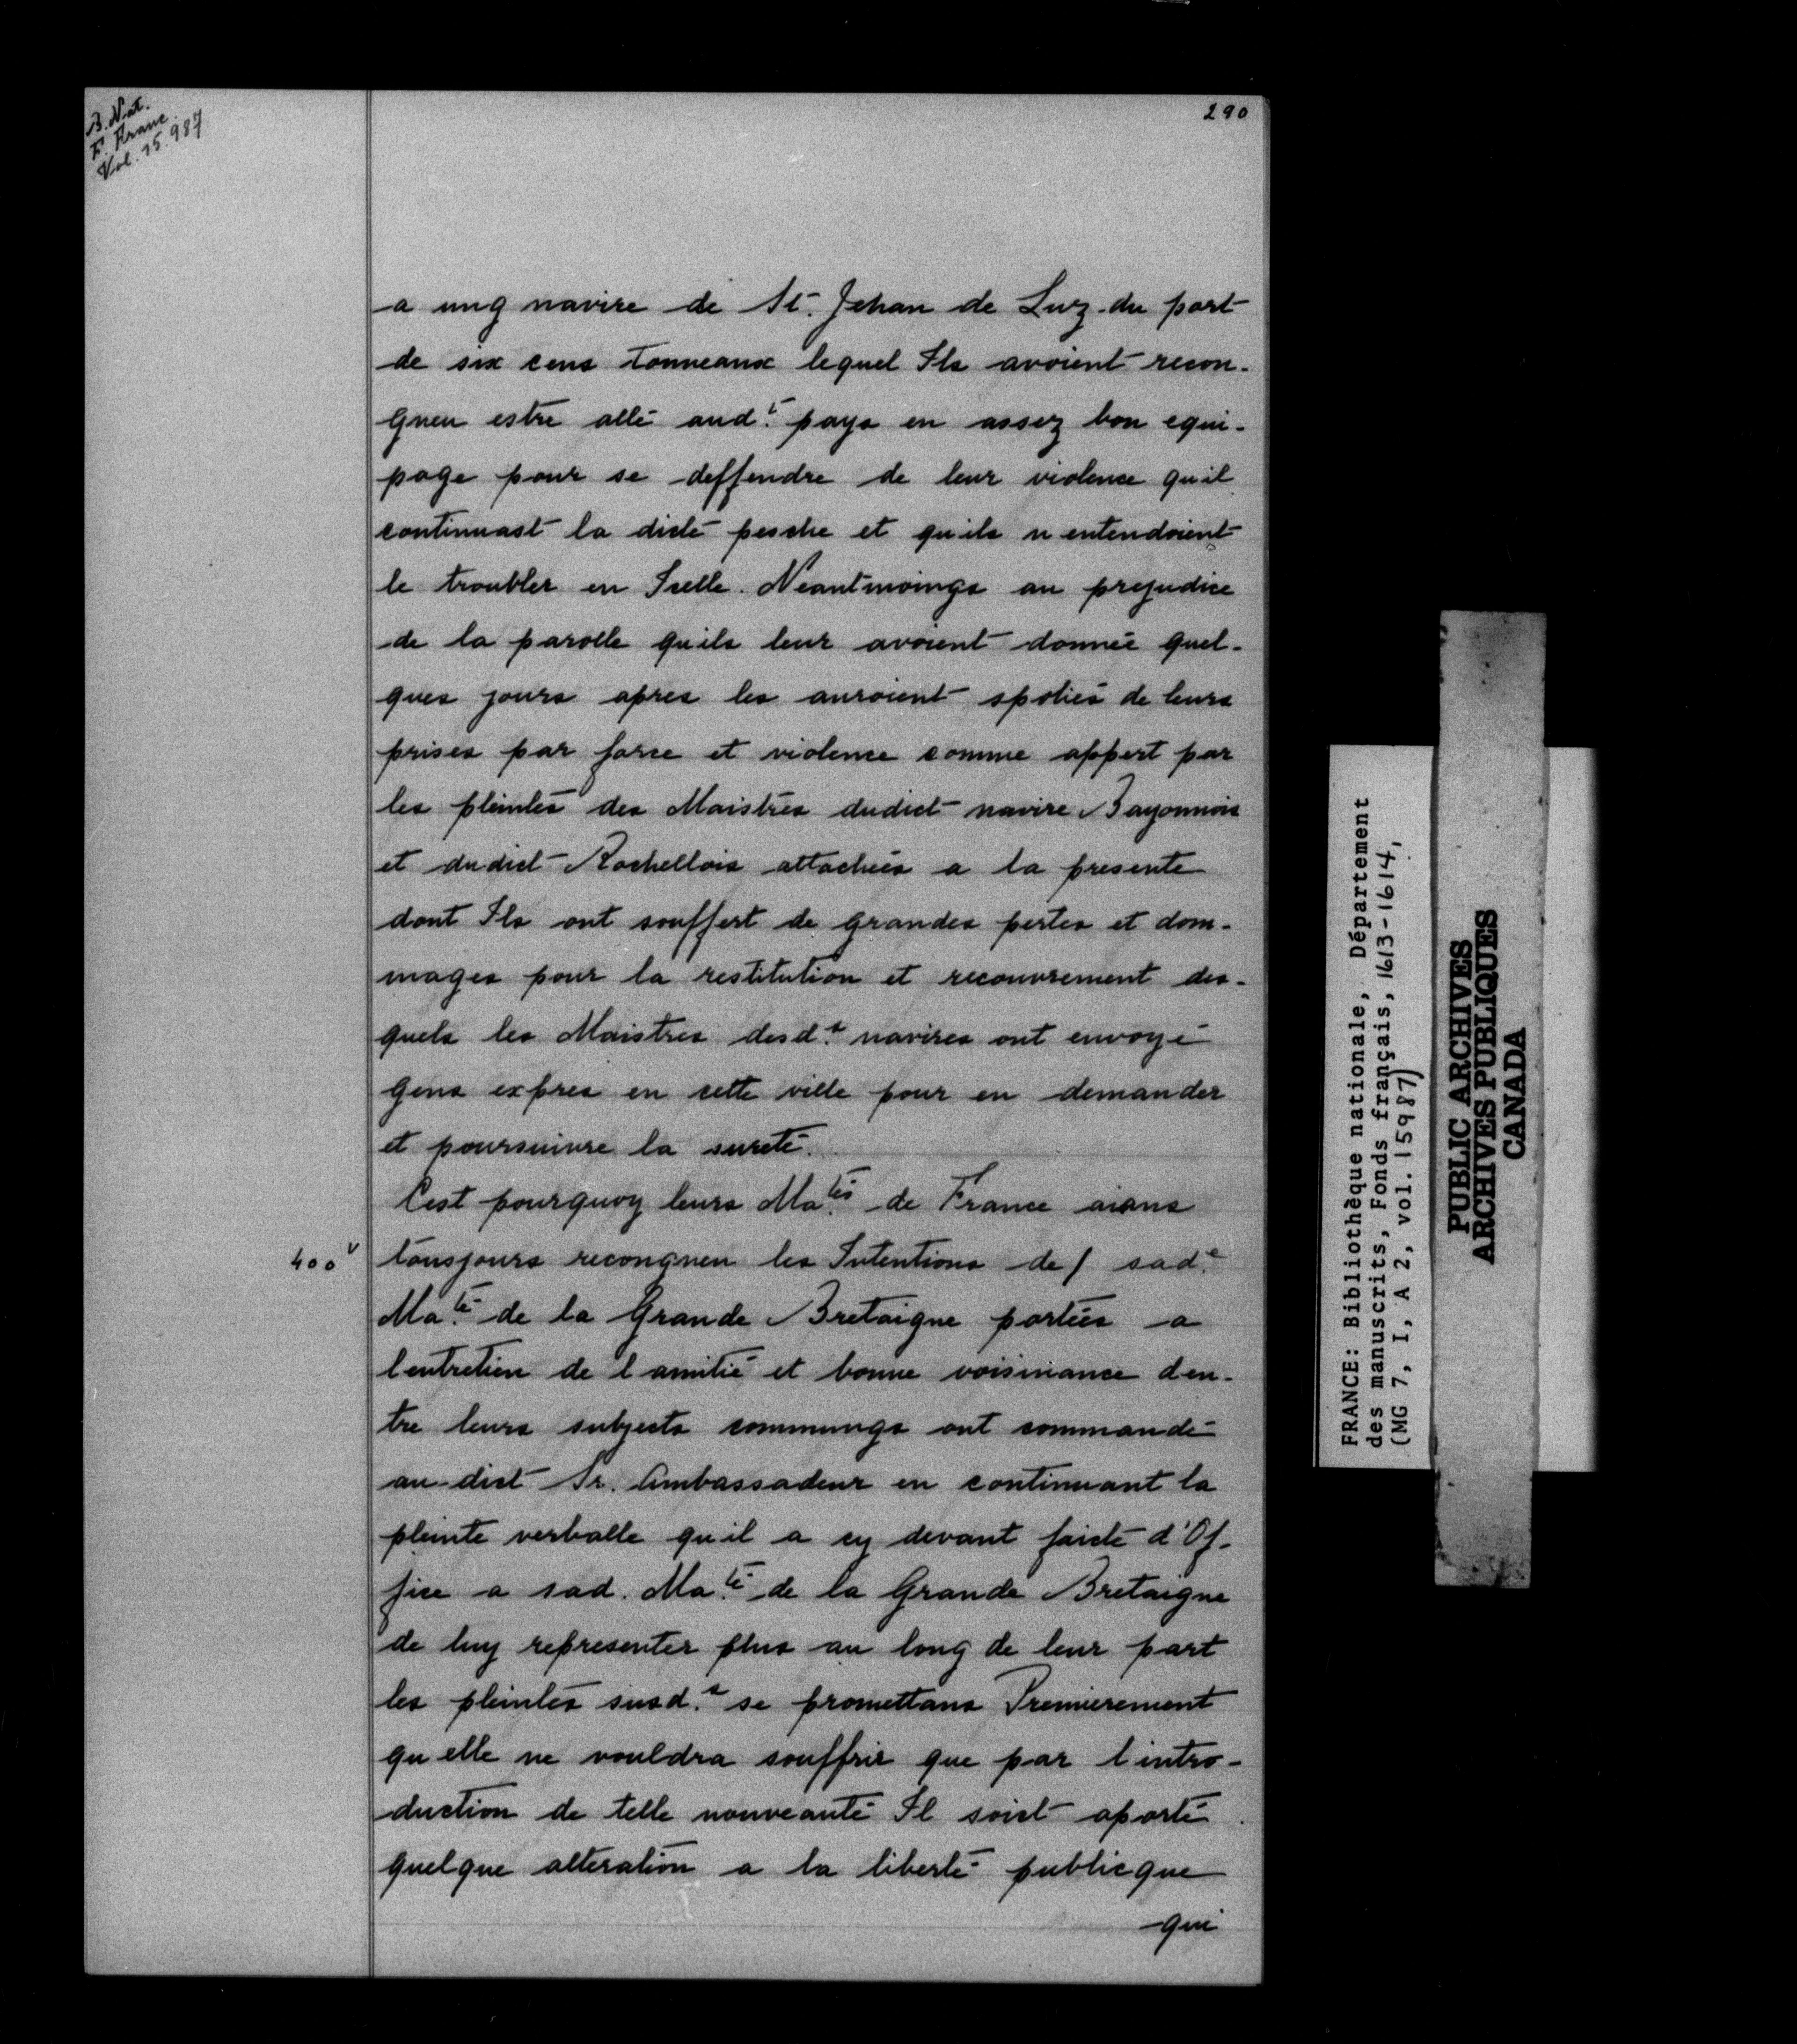 B. Nat.
F. Franc.
Vol. 15.987
290
a ung navire de St. Jehan de Luz du port
de six cens tonneaux lequel Ils avoient recon-
gneu estre allé aud.t pays en assez bon equi-
page pour se deffendre de leur violence quil
continuast la dicte pesche et quils n entendoient
le troubler en Icelle. Neantmoings au prejudice
de la parolle quils leur avoient donnée quel-
ques jours apres les auroient spoliés de leurs
prises par force et violence comme appert par
les pleintes des Maistres dudict navire Bayonnois
et dudict Rochellois attachées a la presente
dont Ils ont souffert de grandes pertes et dom-
mages pour la restitution et recouvrement des-
quels les Maistres desd.s navires ont envoyé
gens expres en cette ville pour en demander
et poursuivre la sureté.
Cest pourquoy leurs Ma.tés de France aians
400 v
tousjours recongneu les Intentions de / sad.e
Ma.té de la Grande Bretaigne portées a
lentretien de l amitié et bonne voisinance den-
tre leurs subjects commungs ont commandé
au dict Sr. Ambassadeur en continuant la
pleinte verballe qu il a cy devant faicte d'Of-
fice a sad. Ma.té de la Grande Bretaigne
de luy representer plus au long de leur part
les pleintes susd.s se promettans Premierement
qu elle ne vouldra souffrir que par l intro-
duction de telle nouveauté Il soict aporté
quelque alteration a la liberté publicque
qui
FRANCE: Bibliothèque nationale, Département
des manuscrits, Fonds français, 1613-1614,
(MG 7, I, A 2, vol. 15987)
PUBLIC ARCHIVES
ARCHIVES PUBLIQUES
CANADA